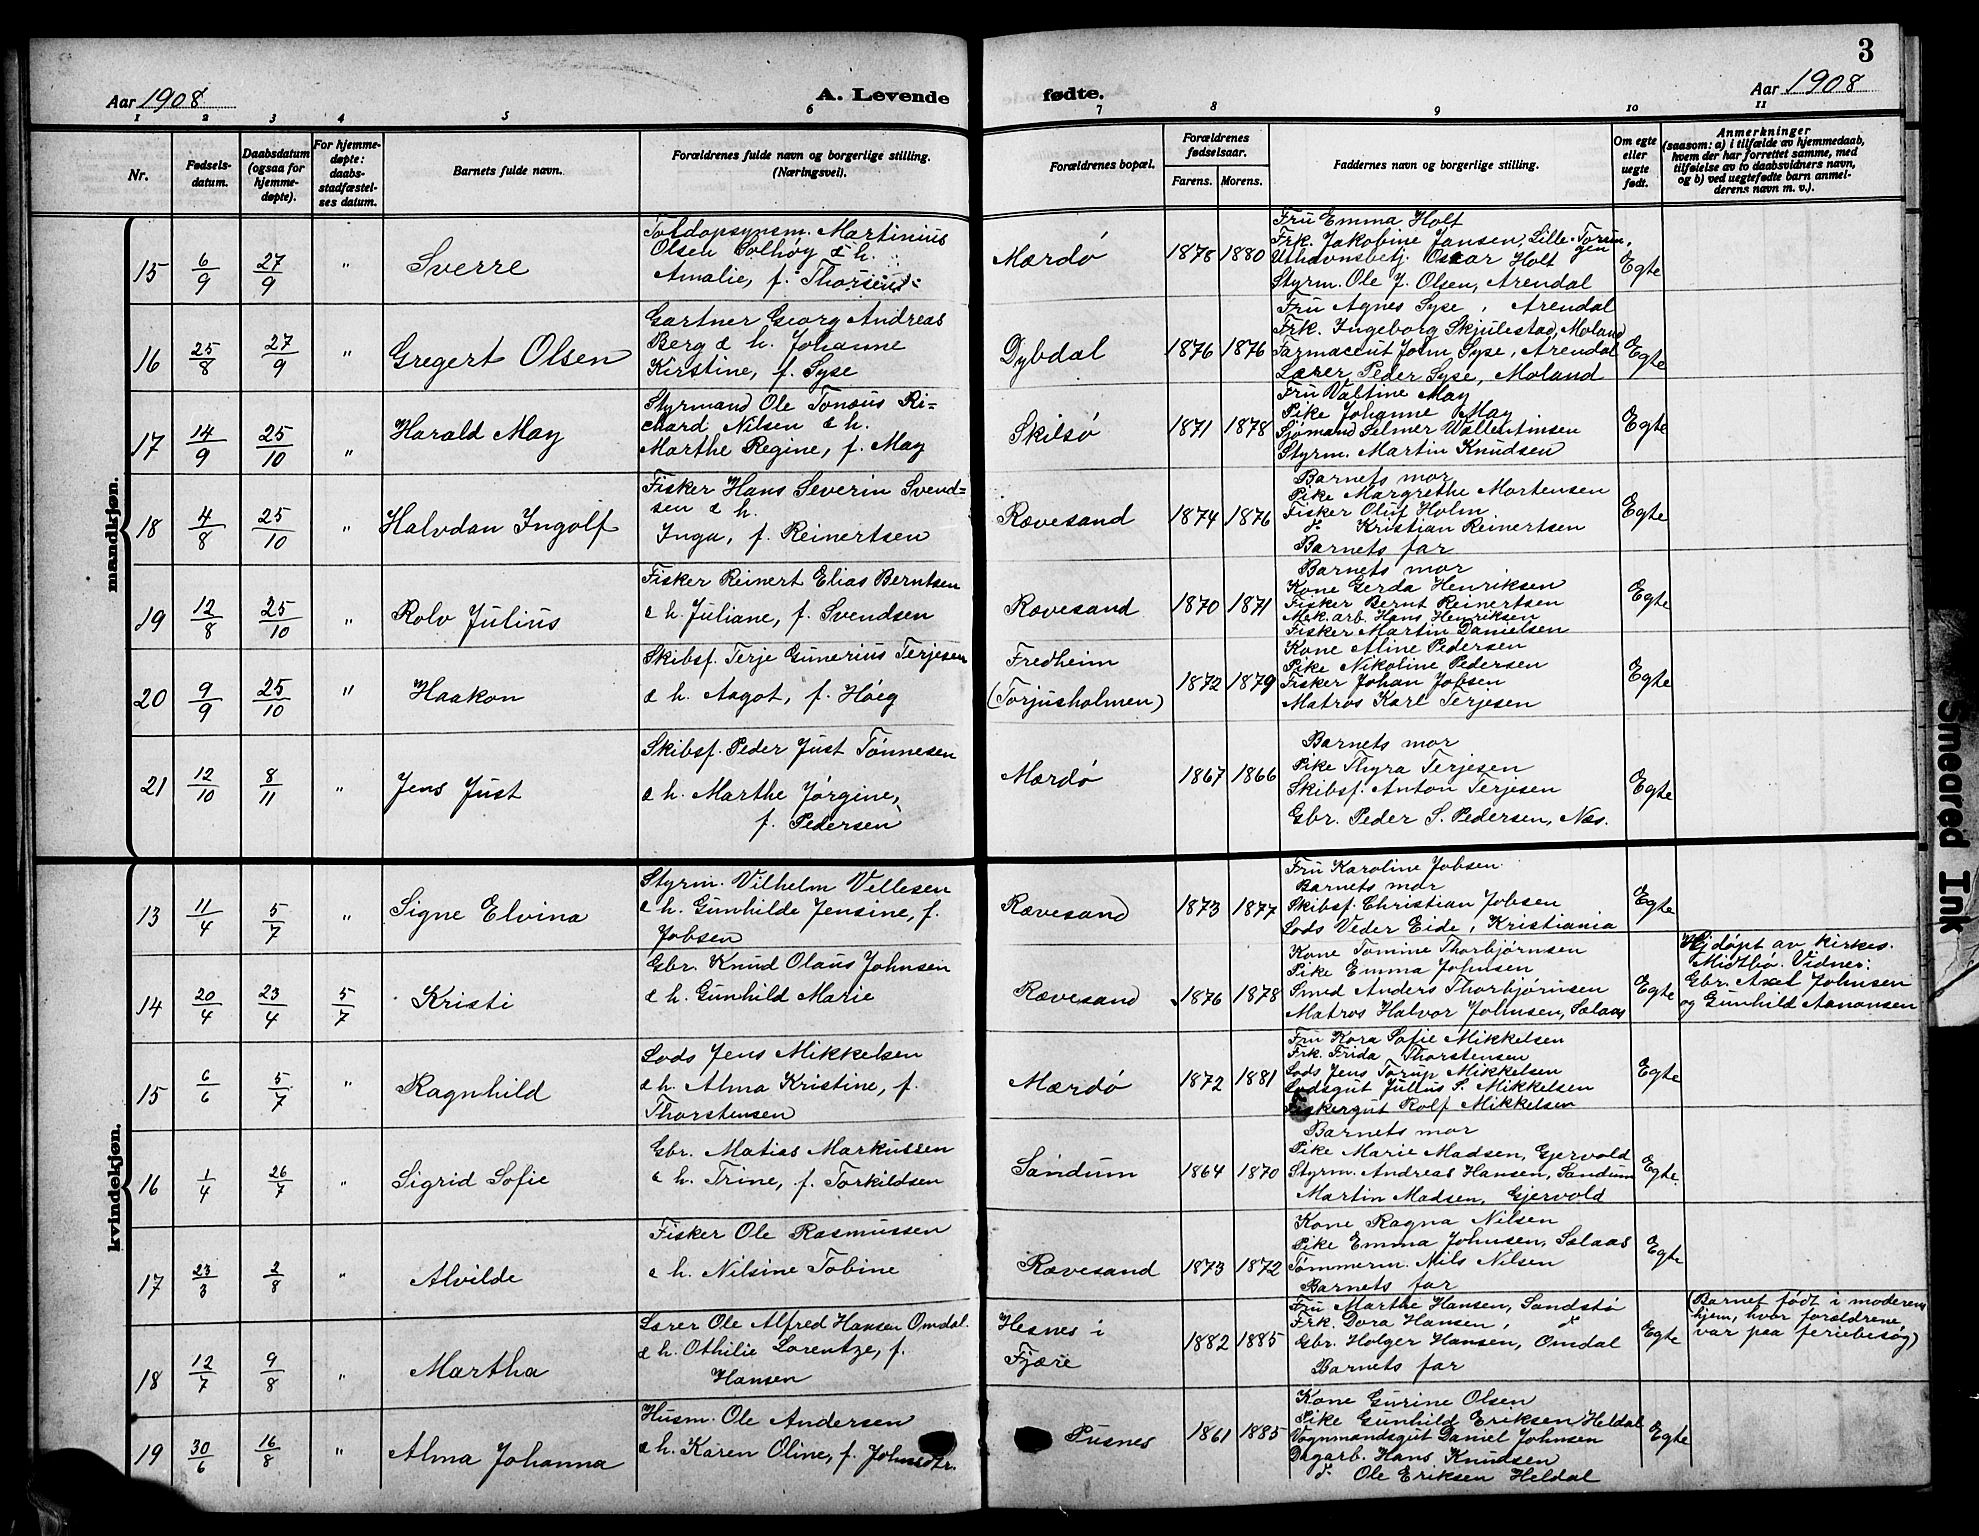 3
Aar 1908
A. Levende fødte.
Aar 1908
1 2 3 4 5 6 7 8 9 10 11
Nr.
Fødsels-
datum.
Daabsdatum
(ogsaa for
hjemme-
døpte).
For hjemme-
døpte:
daabs-
stadfæstel-
ses datum.
Barnets fulde navn.
Forældrenes fulde navn og borgerlige stilling.
(Næringsvei).
Forældrenes bopæl.
Forældrenes
fødselsaar.
Farens. Morens.
Faddernes navn og borgerlige stilling.
Om egte
eller
uegte
født.
Anmerkninger
(saasom: a) i tilfælde av hjemmedaab,
hvem der har forrettet samme, med
tilføielse av to daabsvidners navn,
og b) ved uegtefødte barn anmel-
derens navn m. v.).
mandkjøn.
15 6/9 27/9 " Sverre
Toldopsynsm. Martinius
Olsen Solhøy & h.
Amalie, f. Thorsen
Mærdø 1878 1880
Fru Emma Holt
Frk. Jakobine Jansen, Lille-Torun-
gen
Uthavnsbetj. Oscar Holt
Styrm. Ole J. Olsen, Arendal
Egte
16 25/8 27/9 " Gregert Olsen
Gartner Georg Andreas
Berg & h. Johanne
Kirstine, f. Syse
Dybdal 1876 1876
Fru Agnes Syse, Arendal
Frk. Ingeborg Skjulestad, Moland
Farmaceut John Syse, Arendal
Lærer Peder Syse, Moland
Egte
17 14/9 25/10 " Harald May
Styrmand Ole Tonæus Ri=
chard Nilsen & h.
Marthe Regine, f. May
Skilsø 1871 1878
Fru Valtine May
Pike Johanne May
Sjømand Selmer Wallentinsen
Styrm. Martin Knudsen
Egte
18 4/8 25/10 " Halvdan Ingolf
Fisker Hans Severin Svend=
sen & h.
Inga, f. Reinertsen
Rævesand 1874 1876
Barnets mor
Pike Margrethe Mortensen
Fisker Oluf Holm
do Kristian Reinertsen
Barnets far
Egte
19 12/8 25/10 " Rolv Julius
Fisker Reinert Elias Berntsen
& h. Juliane, f. Svendsen
Rævesand 1870 1871
Barnets mor
Kone Gerda Henriksen
Fisker Bernt Reinertsen
Mek.arb. Hans Henriksen
Fisker Martin Danielsen
Egte
20 9/9 25/10 " Haakon
Skibsf. Terje Gunerius Terjesen
& h. Aagot, f. Høeg
Fredheim
(Torjusholmen)
1872 1879
Kone Aline Pedersen
Pike Nikoline Pedersen
Fisker Johan Jobsen
Matros Karl Terjesen
Egte
21 12/10 8/11 " Jens Just
Skibsf. Peder Just Tønnesen
& h. Marthe Jørgine,
f. Pedersen
Mærdø 1867 1866
Barnets mor
Pike Thyra Terjesen
Skibsf. Anton Terjesen
Gbr. Peder S. Pedersen, Næs.
Egte
kvindekjøn.
13 11/4 5/7 " Signe Elvina
Styrm. Vilhelm Vellesen
& h. Gunhilde Jensine, f.
Jobsen
Rævesand 1873 1877
Fru Karoline Jobsen
Barnets mor
Skibsf. Christian Jobsen
Lods Veder Eide, Kristiania
Egte
14 20/4 23/4 5/7 Kristi
Gbr. Knud Olaus Johnsen
& h. Gunhild Marie
Rævesand 1876 1878
Kone Tomine Thorbjørnsen
Pike Emma Johnsen
Smed Anders Thorbjørnsen
Matros Halvor Johnsen, Salaas
Egte
Hj.døpt av kirkes.
Midtbø. Vidner:
Gbr. Axel Johnsen
og Gunhild Aanonsen
15 6/6 5/7 " Ragnhild
Lods Jens Mikkelsen
& h. Alma Kristine, f.
Thorstensen
Mærdø 1872 1881
Fru Kora Sofie Mikkelsen
Frk. Frida Thorstensen
Lods Jens Torup Mikkelsen
Lodsgut Julius S. Mikkelsen
Fiskergut Rolf Mikkelsen
Egte
16 1/4 26/7 " Sigrid Sofie
Gbr. Matias Markussen
& h. Trine, f. Torkildsen
Sandum 1864 1870
Barnets mor
Pike Marie Madsen, Gjervold
Styrm. Andreas Hansen, Sandum
Martin Madsen, Gjervold
Egte.
17 23/3 2/8 " Alvilde
Fisker Ole Rasmussen
& h. Nilsine Tobine
Rævesand 1873 1872
Kone Ragna Nilsen
Pike Emma Johnsen, Salaas
Tømmerm. Nils Nilsen
Barnets far
Egte
18 12/7 9/8 " Martha
Lærer Ole Alfred Hansen Omdal
& h. Othilie Lorentze, f.
Hansen
Hesnes i
Fjære
1882 1885
Fru Marthe Hansen, Sandstø
Frk. Dora Hansen, do
Gbr. Holger Hansen, Omdal
Barnets far
Egte
(Barnet født i moderens
hjem, hvor forældrene
var paa feriebesøg)
19 30/6 16/8 " Alma Johanna
Husm. Ole Andersen
& h. Karen Oline, f. Johnsdtr.
Pusnes 1861 1885
Kone Gurine Olsen
Pike Gunhild Eriksen Heldal
Vognmandsgut Daniel Johnsen
Dagarb. Hans Knudsen
do Ole Eriksen Heldal
Egte
Smeared Ink